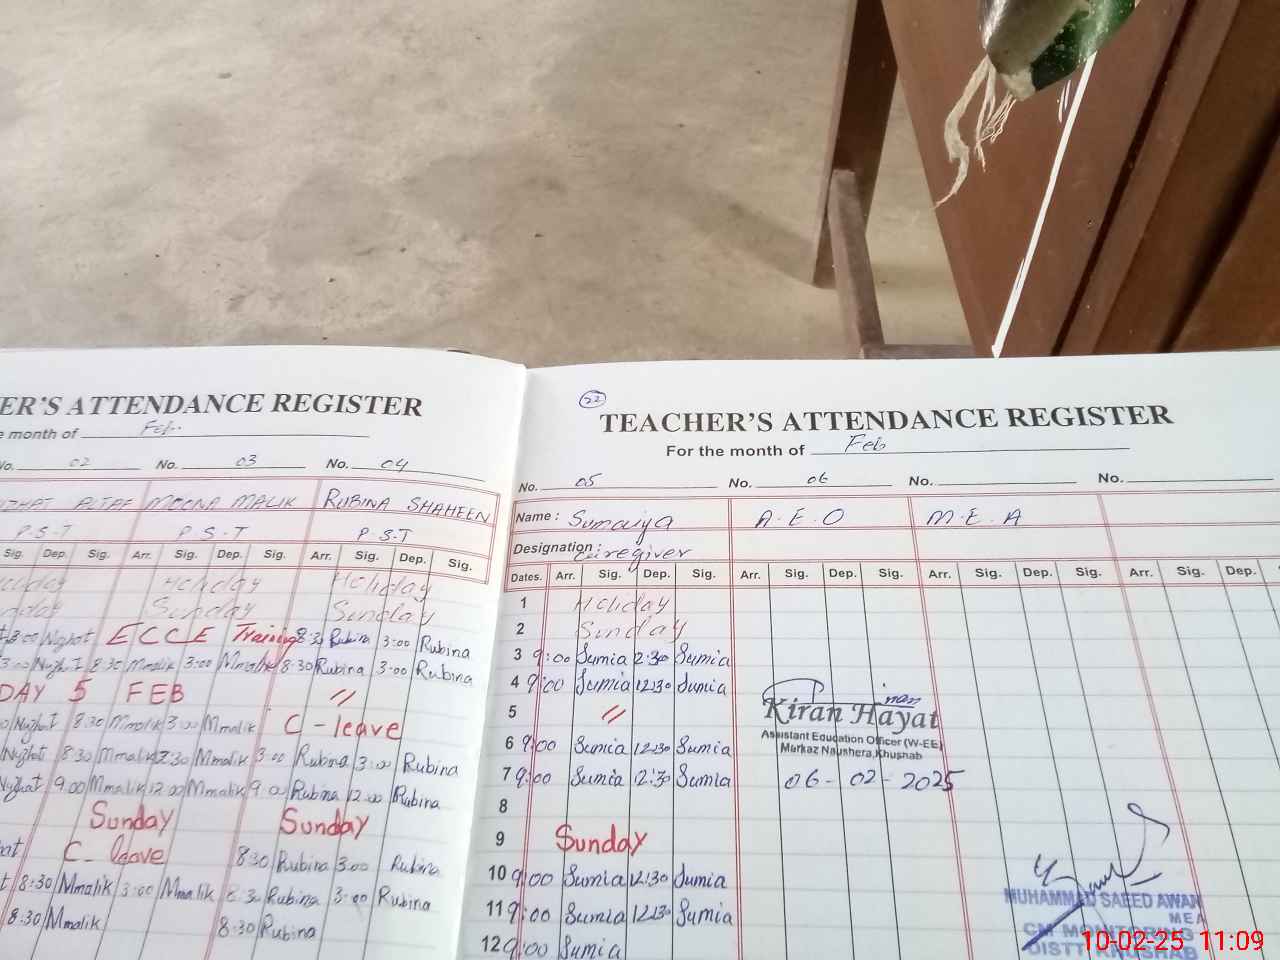 ER'S ATTENDANCE REGISTER
e month of Feb.
No. 02 No. 03 No. 04
ZHAT ALTAF MOONA MALIK RUBINA SHAHEEN
P.S.T P.S.T P.S.T
Sig. Dep. Sig. Arr. Sig. Dep. Sig. Arr. Sig. Dep. Sig.
Holiday Holiday
Sunday Sunday
3:00 Nuzhat ECCE Training 8:30 Rubina 3:00 Rubina
3:00 Nuzhat 8:30 Mmalik 3:00 Mmalik 8:30 Rubina 3:00 Rubina
DAY 5 FEB //
Nuzhat 8:30 Mmalik 3:00 Mmalik C-leave
Nuzhat 8:30 Mmalik 12:30 Mmalik 3:00 Rubina 3:00 Rubina
Nuzhat 9:00 Mmalik 12:00 Mmalik 9:00 Rubina 12:00 Rubina
Sunday Sunday
hat C-leave 8:30 Rubina 3:00 Rubina
t 8:30 Mmalik 3:00 Mmalik 8:30 Rubina 3:00 Rubina
8:30 Mmalik 8:30 Rubina
22
TEACHER'S ATTENDANCE REGISTER
For the month of Feb
No. 05 No. 06 No. No.
Name: Sumaiya A.E.O M.E.A
Designation: Caregiver
Dates. Arr. Sig. Dep. Sig. Arr. Sig. Dep. Sig. Arr. Sig. Dep. Sig. Arr. Sig. Dep.
1 Holiday
2 Sunday
3 9:00 Sumia 12:30 Sumia
4 9:00 Sumia 12:30 Sumia
5 //
6 9:00 Sumia 12:30 Sumia
7 9:00 Sumia 12:30 Sumia
8
9 Sunday
10 9:00 Sumia 12:30 Sumia
11 9:00 Sumia 12:30 Sumia
12 9:00 Sumia
Kiran Hayat
Assistant Education Officer (W-EE)
Markaz Naushera, Khushab
06-02-2025
MUHAMMAD SAEED AWAN
MEA
CM MONITORING
DISTT KHUSHAB
10-02-25 11:09